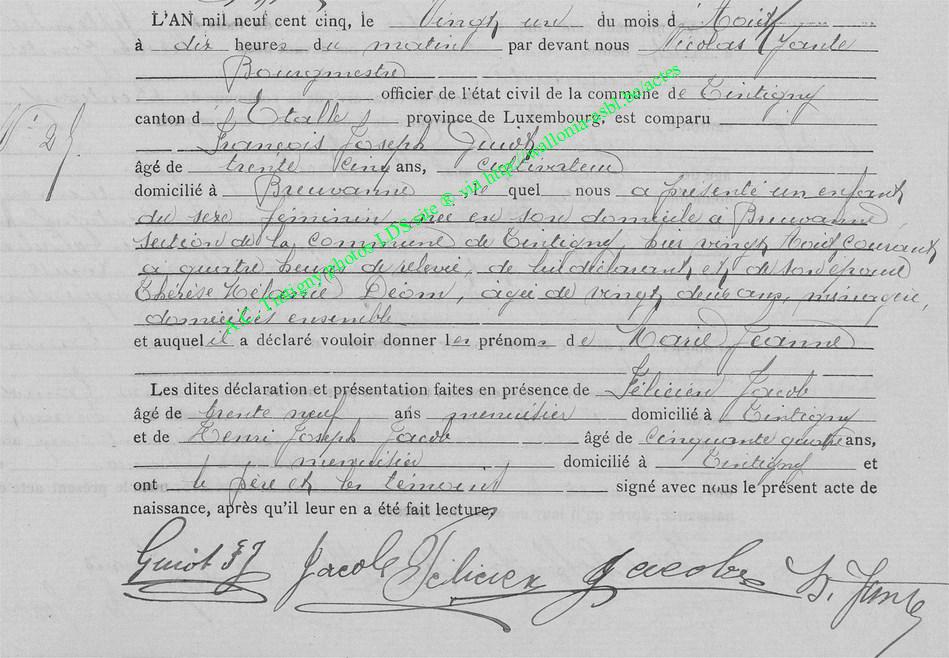 L'AN mil neuf cent cinq, le Vingt un du mois d'Août
à dix heures du matin par devant nous Nicolas Jante
Bourgmestre
officier de l'état civil de la commune de Tintigny
canton d'Etalle, province de Luxembourg, est comparu
N° 25.
François Joseph Guiot
âgé de trente cinq ans, cultivateur
domicilié à Breuvanne, le quel nous a présenté un enfant
du sexe féminin, née en son domicile à Breuvanne
section de la commune de Tintigny, hier vingt Août courant
à quatre heures de relevée, de lui déclarant et de son épouse
Thérèse Mélanie Déom, âgée de vingt deux ans, ménagère,
domiciliés ensemble
et auquel il a déclaré vouloir donner les prénoms de Marie Jeanne
Les dites déclaration et présentation faites en présence de Félicien Jacob
âgé de trente neuf ans menuisier domicilié à Tintigny
et de Henri Joseph Jacob âgé de cinquante quatre ans,
menuisier domicilié à Tintigny et
ont le père et les témoins signé avec nous le présent acte de
naissance, après qu'il leur en a été fait lecture,
Guiot FJ Jacob Félicien Jacob N. Jante
A.C. Tintigny photos LDS site ® via http://wallonia-asbl.be/actes